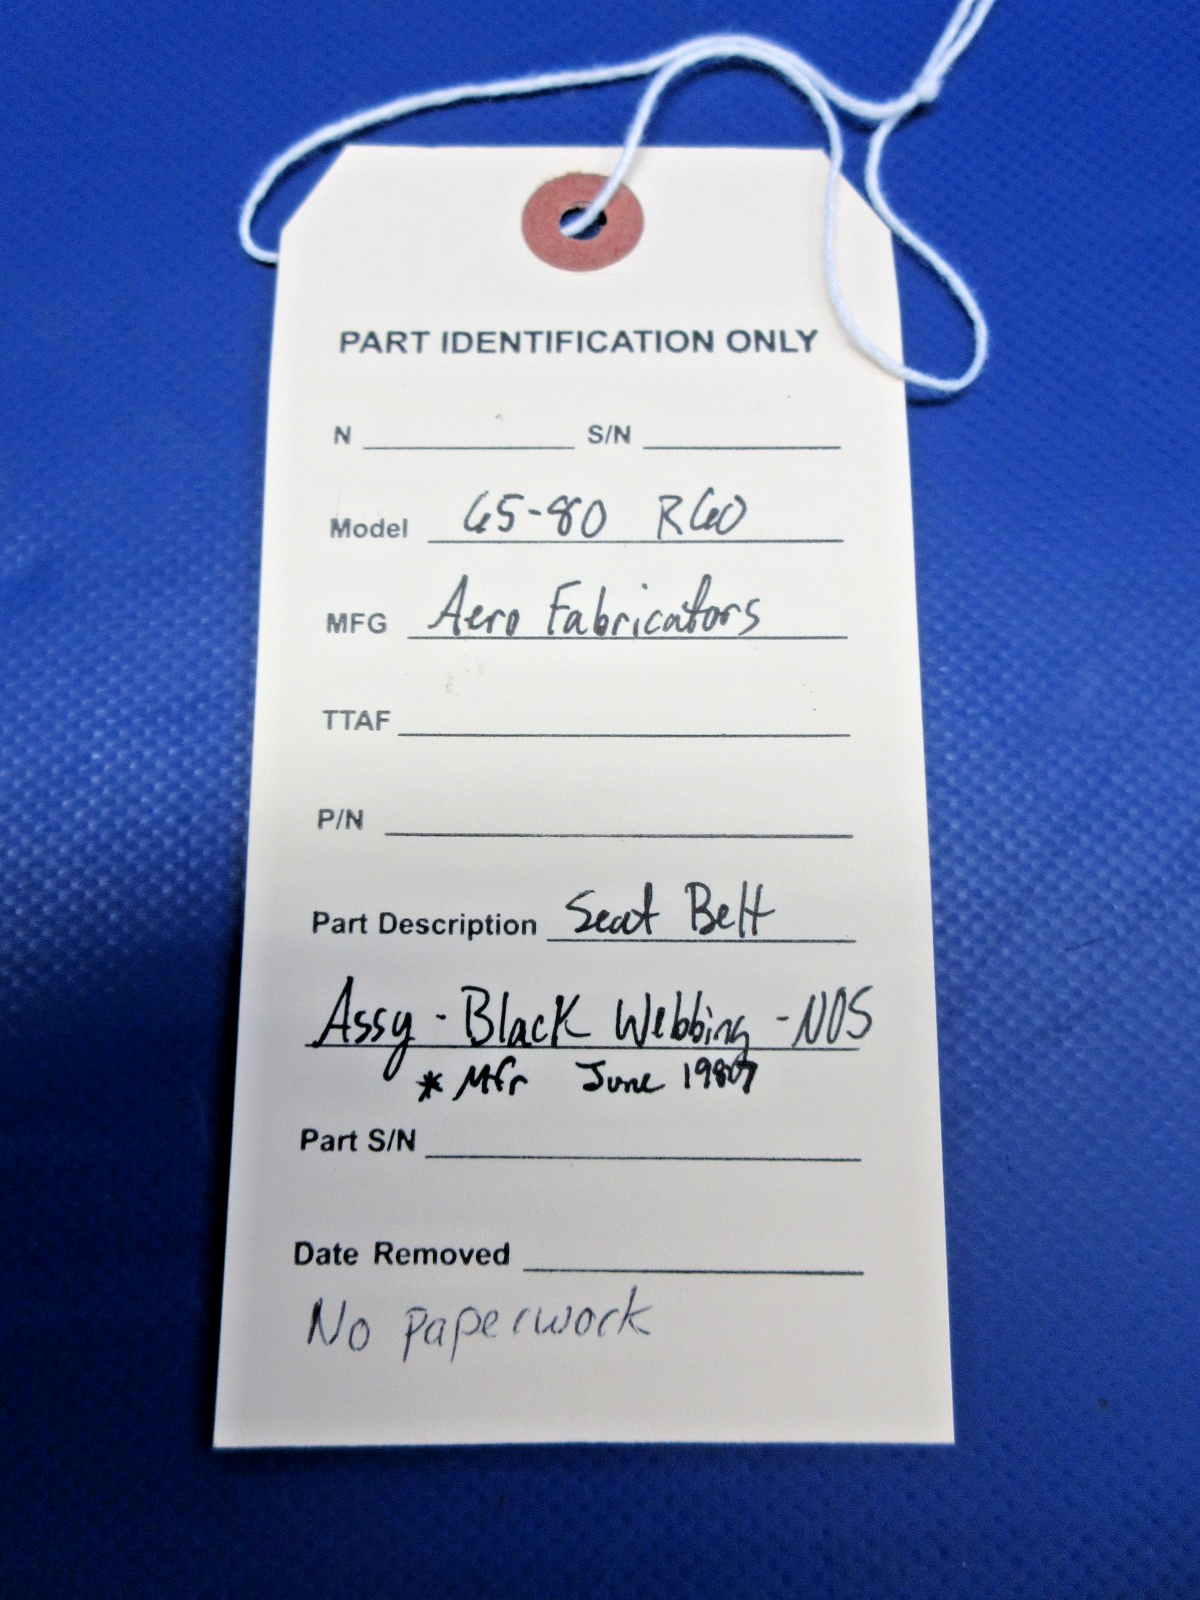 PART IDENTIFICATION ONLY
N S/N
Model 65-80 RGO
MFG Aero Fabricators
TTAF
P/N
Part Description Seat Belt
Assy - Black Webbing - NOS
* Mfr June
Part S/N
Date Removed
No paperwork